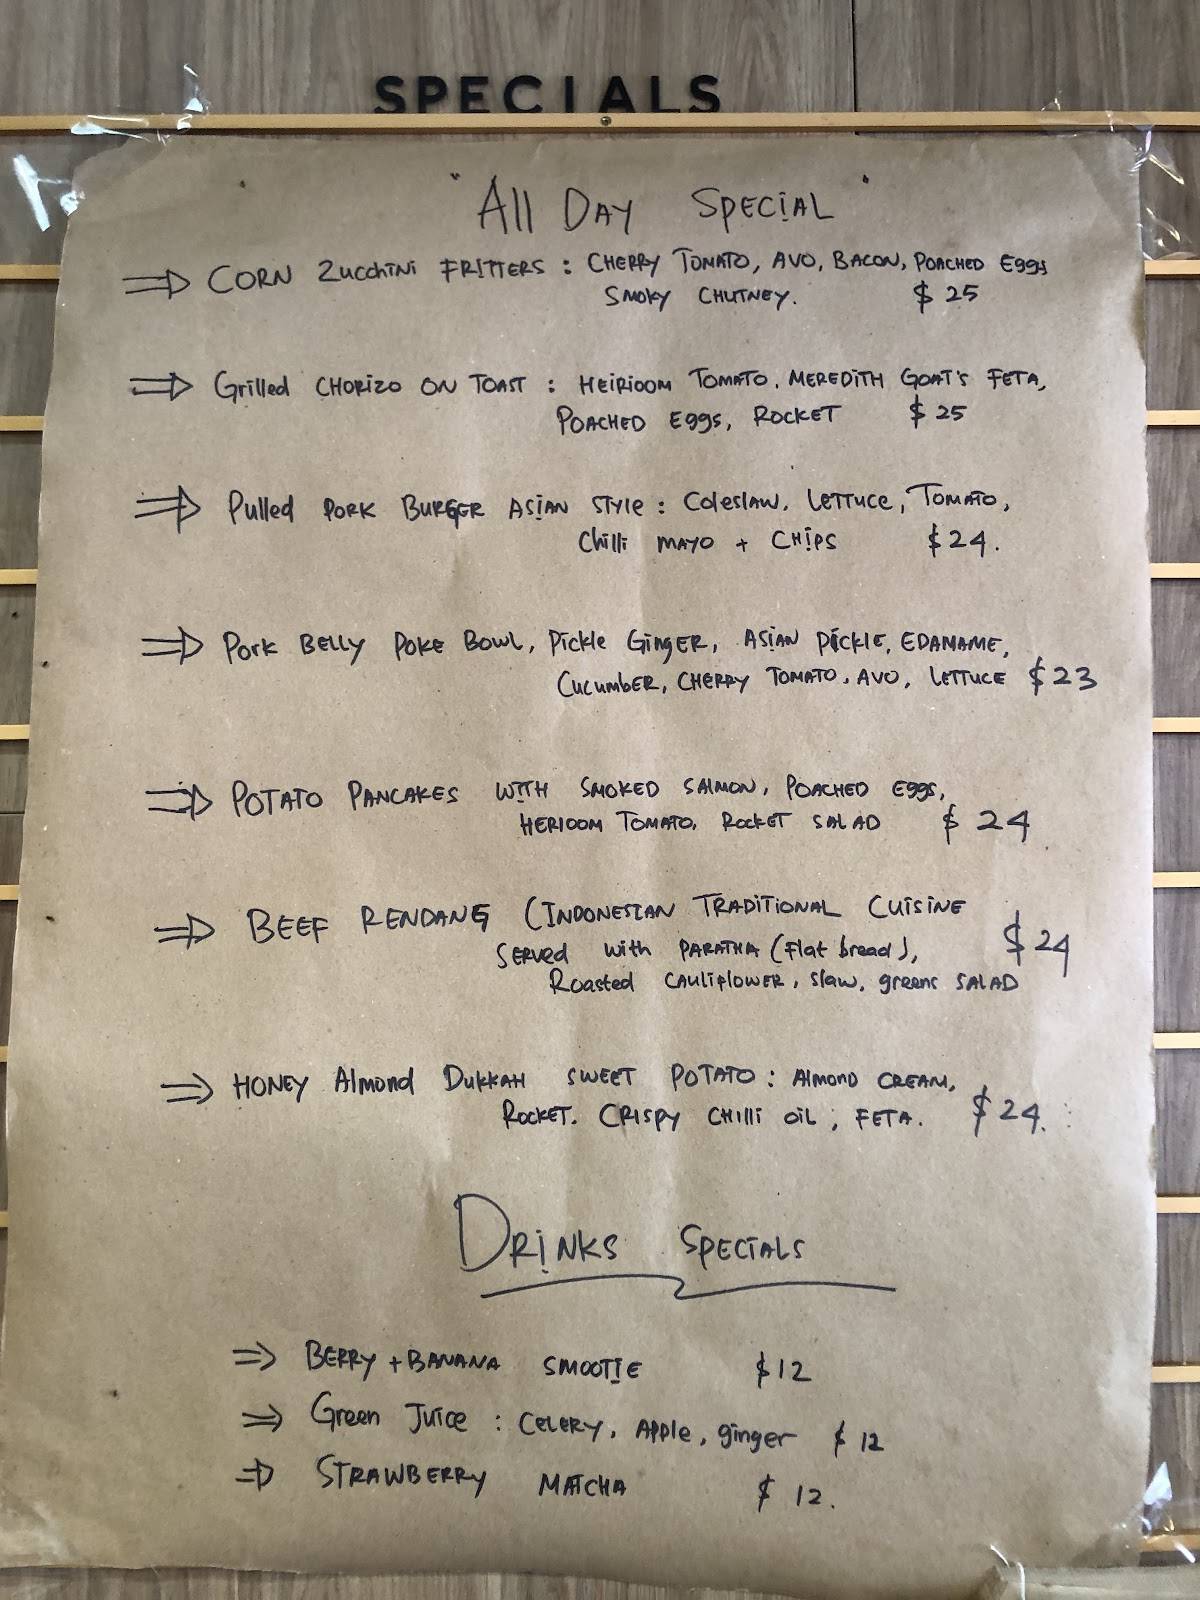 SPECIALS
"All DAY SPECIAL"
⇒ CORN ZUCCHINI FRITTERS : CHERRY TOMATO, AVO, BACON, POACHED EGGS
SMOKY CHUTNEY. $25
⇒ Grilled CHORIZO ON TOAST : HEIRIOOM TOMATO, MEREDITH GOAT'S FETA,
POACHED EGGS, ROCKET $25
⇒ Pulled PORK BURGER ASIAN STYLE : Coleslaw, LETTUCE, TOMATO,
Chilli MAYO + CHIPS $24.
⇒ Pork BELLY POKE BOWL, Pickle GINGER, ASIAN PICKLE, EDAMAME,
CUCUMBER, CHERRY TOMATO, AVO, LETTUCE $23
⇒ POTATO PANCAKES WITH SMOKED SALMON, POACHED EGGS,
HERIOOM TOMATO, ROCKET SALAD $24
⇒ BEEF RENDANG (INDONESIAN TRADITIONAL CUISINE
SERVED with PARATHA (Flat bread), $24
Roasted CAULIFLOWER, slaw, greens SALAD
⇒ HONEY Almond DUKKAH SWEET POTATO : ALMOND CREAM,
ROCKET. CRISPY CHILLI OIL, FETA. $24.
DRINKS SPECIALS
⇒ BERRY + BANANA SMOOTIE $12
⇒ Green Juice : CELERY, Apple, ginger $12
⇒ STRAWBERRY MATCHA $12.